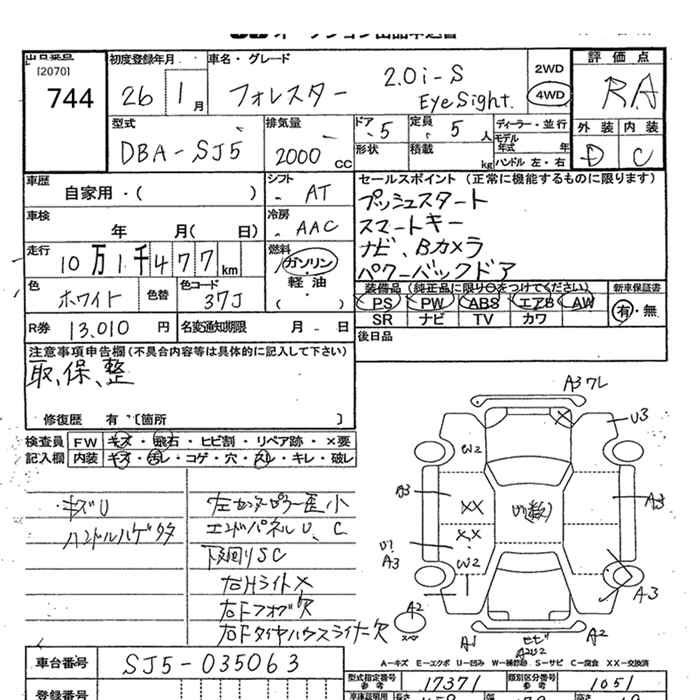 出品番号
[2070]
744
初度登録年月
26 1月
車名・グレード
フォレスター 2.0i-S
EyeSight.
2WD
4WD
評価点
RA
外装 内装
D C
型式
DBA-SJ5
排気量
2000 CC
ドア 5
形状
定員 5 人
積載 kg
ディーラー・並行
モデル年式 年
ハンドル 左・右
車歴
自家用・( )
シフト
AT
車検 年 月( 日)
冷房
AAC
走行
10万1千477km
燃料
ガソリン
軽油
色
ホワイト
色替
色コード
37J
R券 13.010 円
名変通知期限 月 日
セールスポイント(正常に機能するものに限ります)
プッシュスタート
スマートキー
ナビ、Bカメラ
パワーバックドア
装備品(純正品に限り○をつけてください)
新車保証書
PS PW ABS エアB AW
SR ナビ TV カワ
有・無
後日品
注意事項申告欄(不具合内容等は具体的に記入して下さい)
取、保、整
修復歴 有〔箇所 〕
検査員 FW キズ・飛石・ヒビ割・リペア跡・×要
記入欄 内装 キズ・汚レ・コゲ・穴・スレ・キレ・破レ
キズU
ハンドルハゲ
左センターピラー歪小
エンドパネルU、C
下回りSC
右Hライト×
右Fフォグ欠
右Fタイヤハウスライナー欠
A3ワレ
U3
W2
A3
XX
XX
U1
A3
W2
A3
A3
A2
スペア
A1
A2
A-キズ E-エクボ U-凹み W-補修跡 S-サビ C-腐食 XX-交換済
車台番号 SJ5-035063
型式指定番号 17371
類別区分番号 1051
登録番号